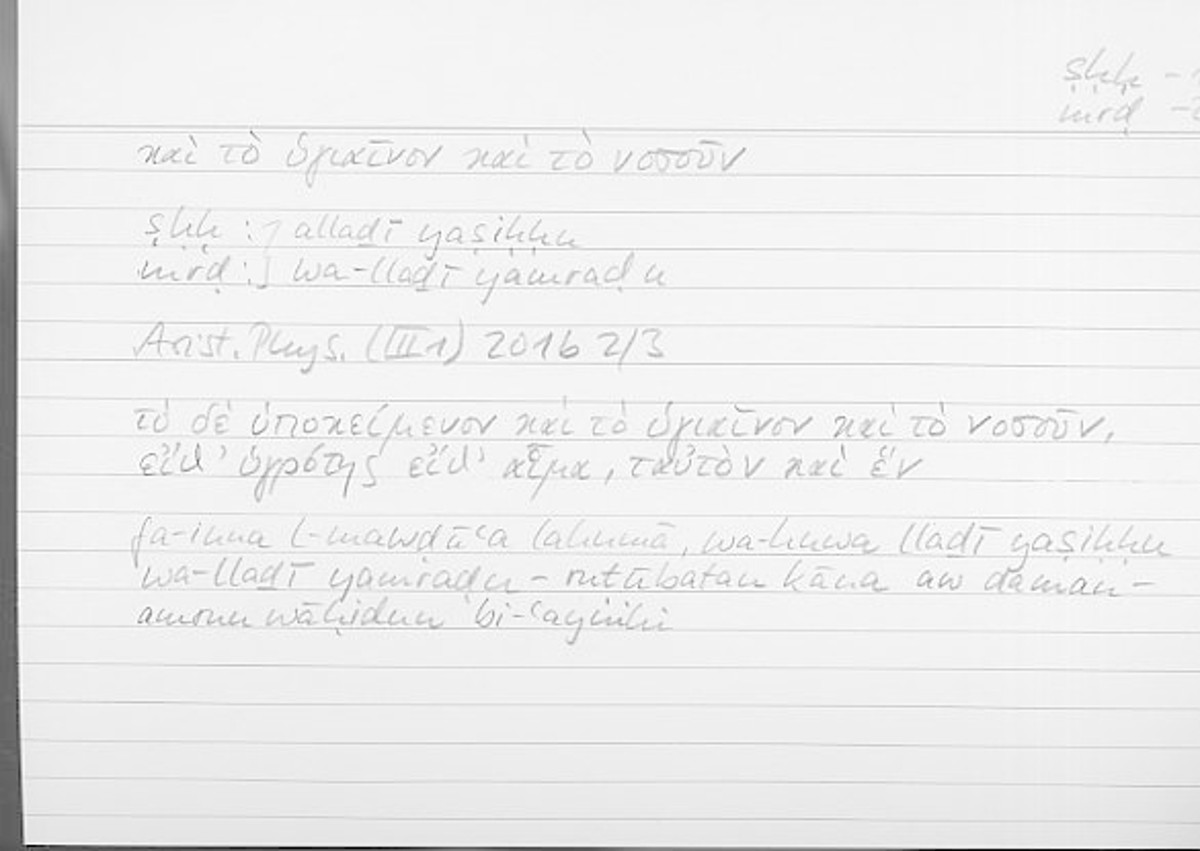 ṣḥḥ -
mrḍ -
καὶ τὸ ὑγιαῖνον καὶ τὸ νοσοῦν
ṣḥḥ :⌉ allaḏī yaṣiḥḥu
mrḍ :⌋ wa-llaḏī yamraḍu
Arist. Phys. (III 1) 201b 2/3
τὸ δὲ ὑποκείμενον καὶ τὸ ὑγιαῖνον καὶ τὸ νοσοῦν,
εἴθ' ὑγρότης εἴθ' αἷμα, ταὐτὸν καὶ ἕν
fa-inna l-mawḍūʿa lahumā, wa-huwa llaḏī yaṣiḥḥu
wa-llaḏī yamraḍu - ruṭūbatan kāna aw daman -
amrun wāḥidun bi-ʿaynihi